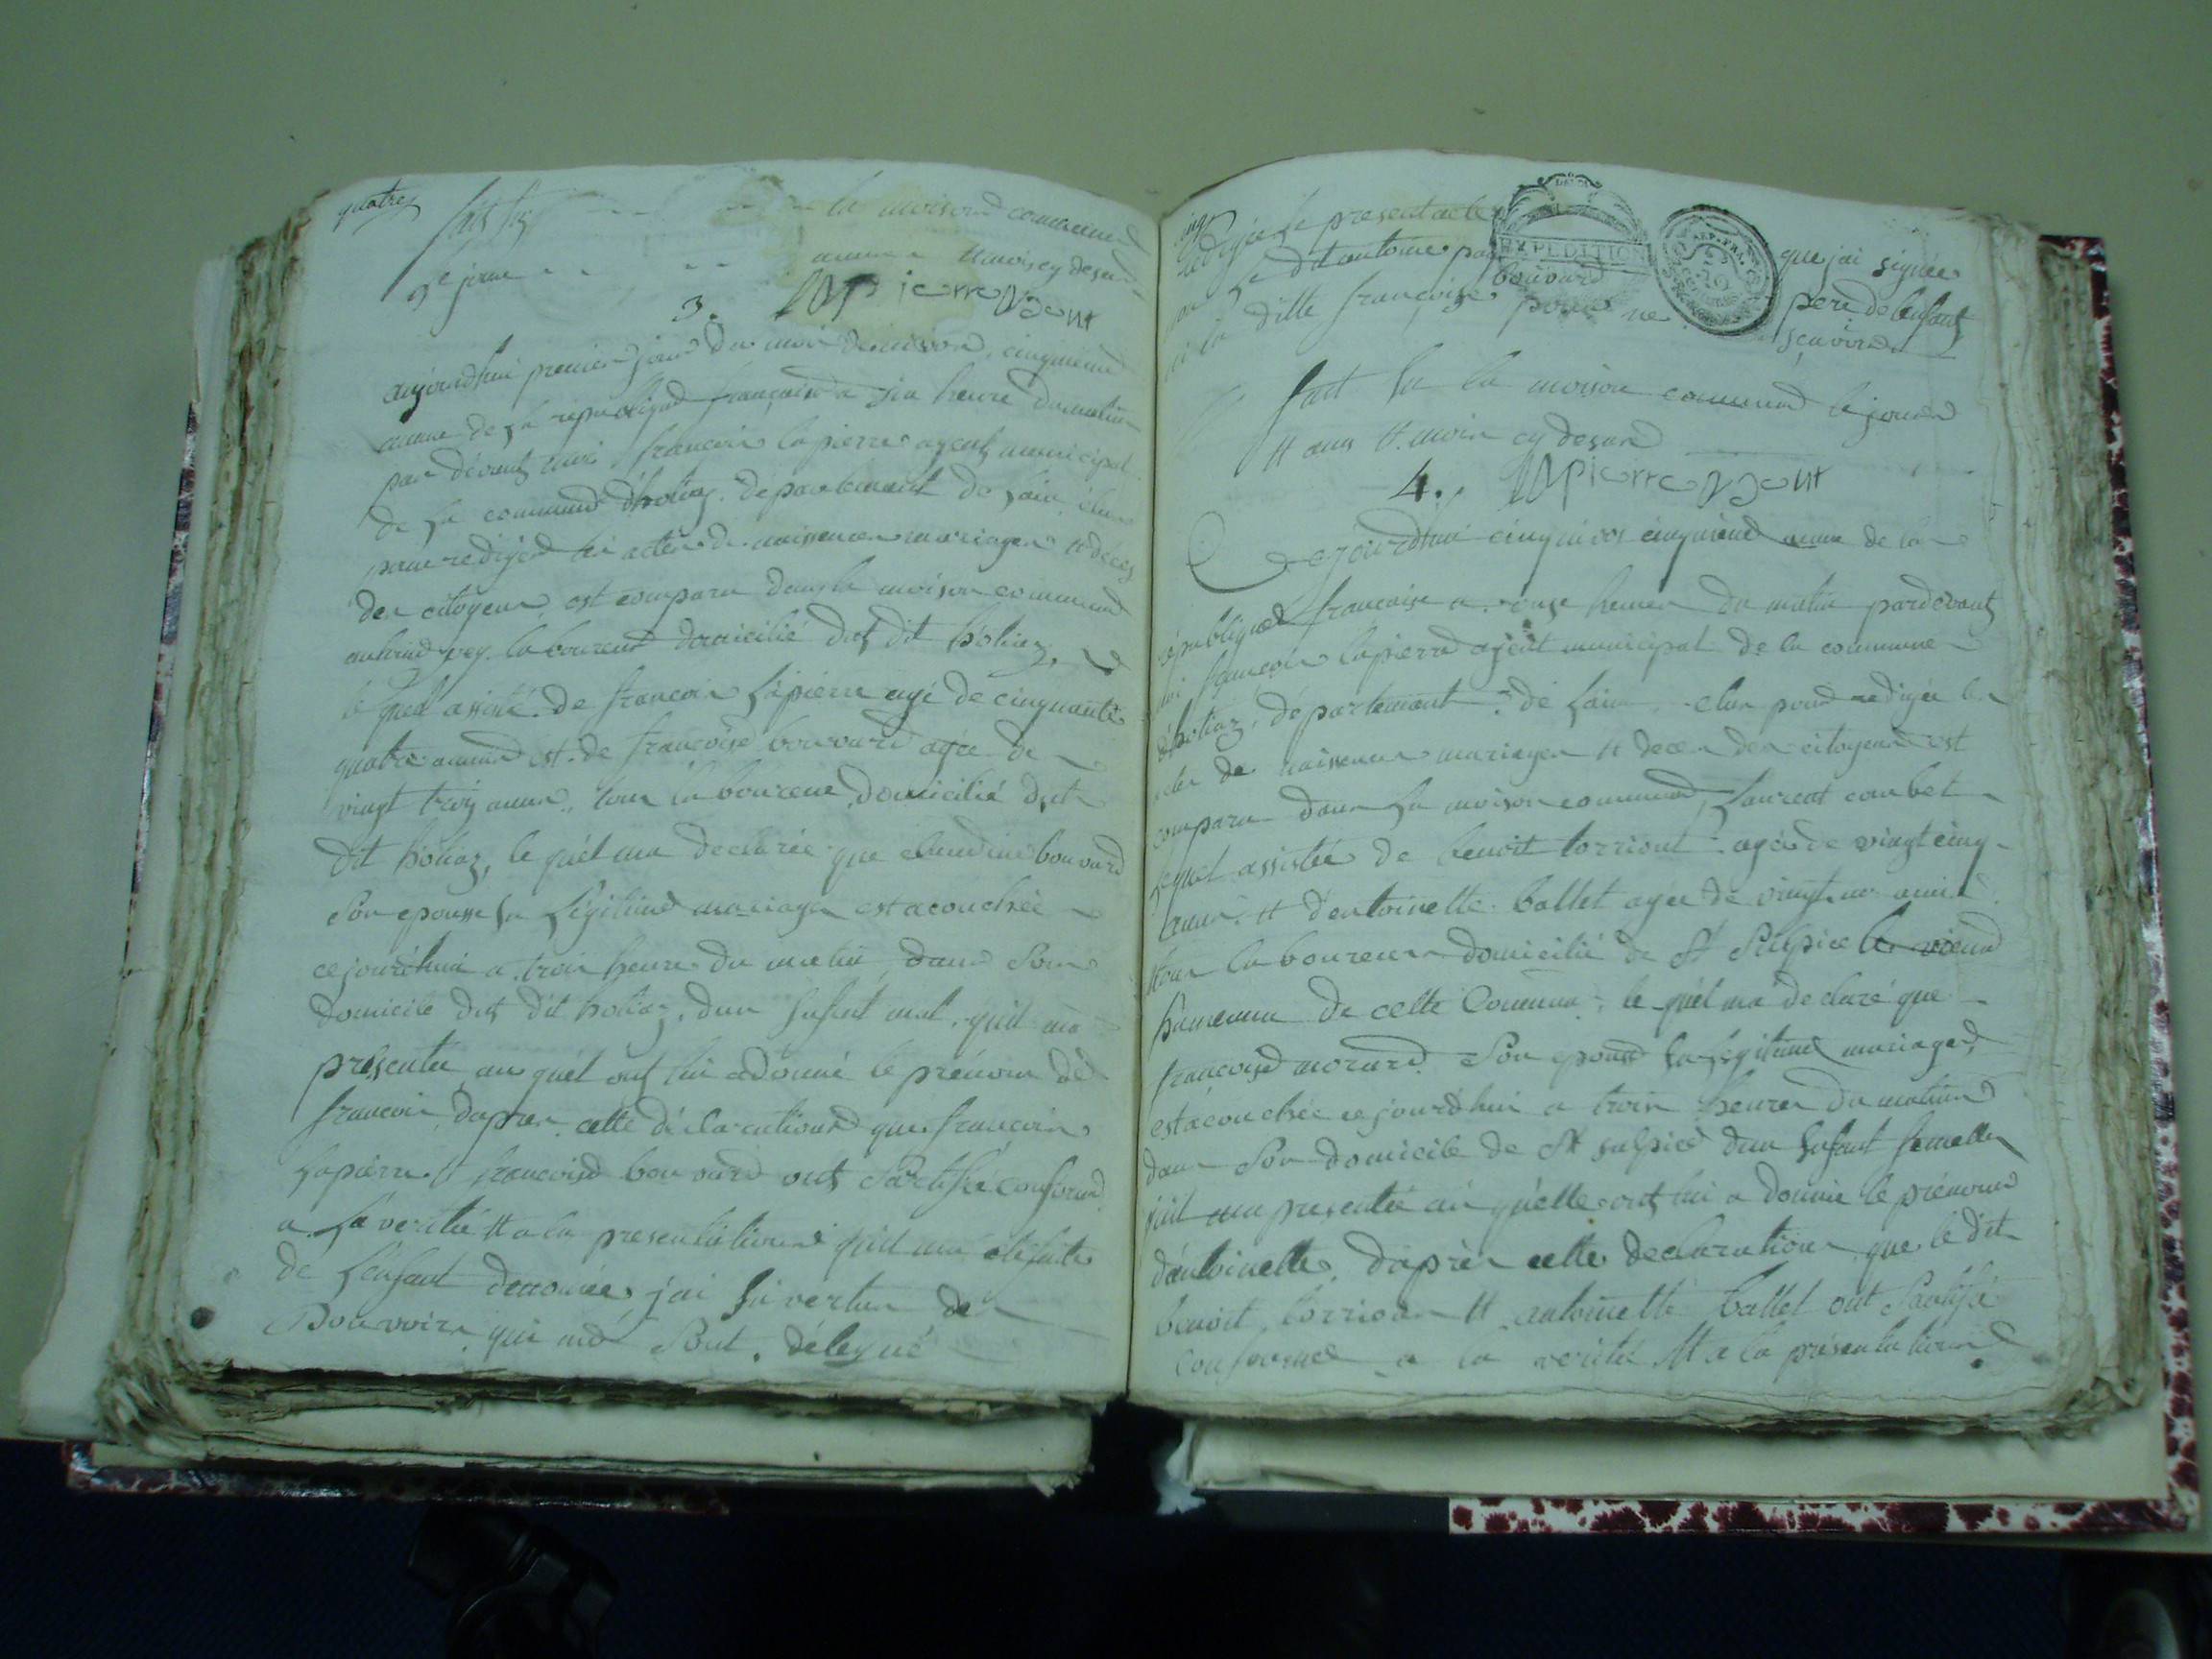 quatre
fait la maison commune
le jour année et mois cy desus
3. lApierre agent
aujourdhui premier jour du moi de nivose, cinquieme
année de la republique française a dix heure du matin
par devant moi françois lapierre agent municipal
de la commune dhotiaz departement de lain, élu
pour redigé les actes de naissences mariages et déces
des citoyens, est comparu dans la maison commune
laboureur domicilié dut dit hotiaz,
le quel assisté de françois lapierre agé de cinquante
quatre années et de françoise bouvard agée de
vingt trois annés, tous laboureur domicilié dut
dit hotiaz, le quel ma declarée que claudine bouvard
son epousse en légitime mariages est acouchée
ce jourdhui a trois heure du matin, dans son
domicile dut dit hotiaz, dun enfant mal, quil ma
presentée au quel ont lui a donné le prénom de
françois, dapres cette déclarations que françois
lapierre et françoise bouvard ont certifié conforme
a la verité et a la presentations quil ma été faite
de lenfant denomée, jai en vertu de
Pouvoirs qui mon sont délegué
cinq
redigée le present acte que jai signée
le dit antoine pere de lenfant
EXPEDITION
ni la ditte françoise bouvard pour ne sçavoir
fait en la maison commune le jour
et ans et mois cy desus
4. lApierre agent
Cejourdhui cinq nivos cinquieme année de la
république française a onze heures du matin pardevant
moi françois lapierre agent municipal de la commune
dhotiaz, département de lain, elus pour redigée les
actes de naissences mariages et deces des citoyens est
comparu dans la maison commune, laurent courbet
lequel assistée de benoit torriont agée de vingt cinq
années et dentoinette ballet agée de vingt
tous laboureurs domicilié de St Sulpice le vieux
hameaux de cette Commune, le quel ma declaré que
françoise morard son epouse en légitime mariages
est acouchée ce jourdhui a trois heures du matin
dans son domicile de St sulpice dun enfant femelle
quil ma presentée au quelle ont lui a donnée le prénom
dantoinette, daprès cette declaration que le dit
benoit torrion et antoinette ballet ont certifié
conforme a la verité et a la présentation